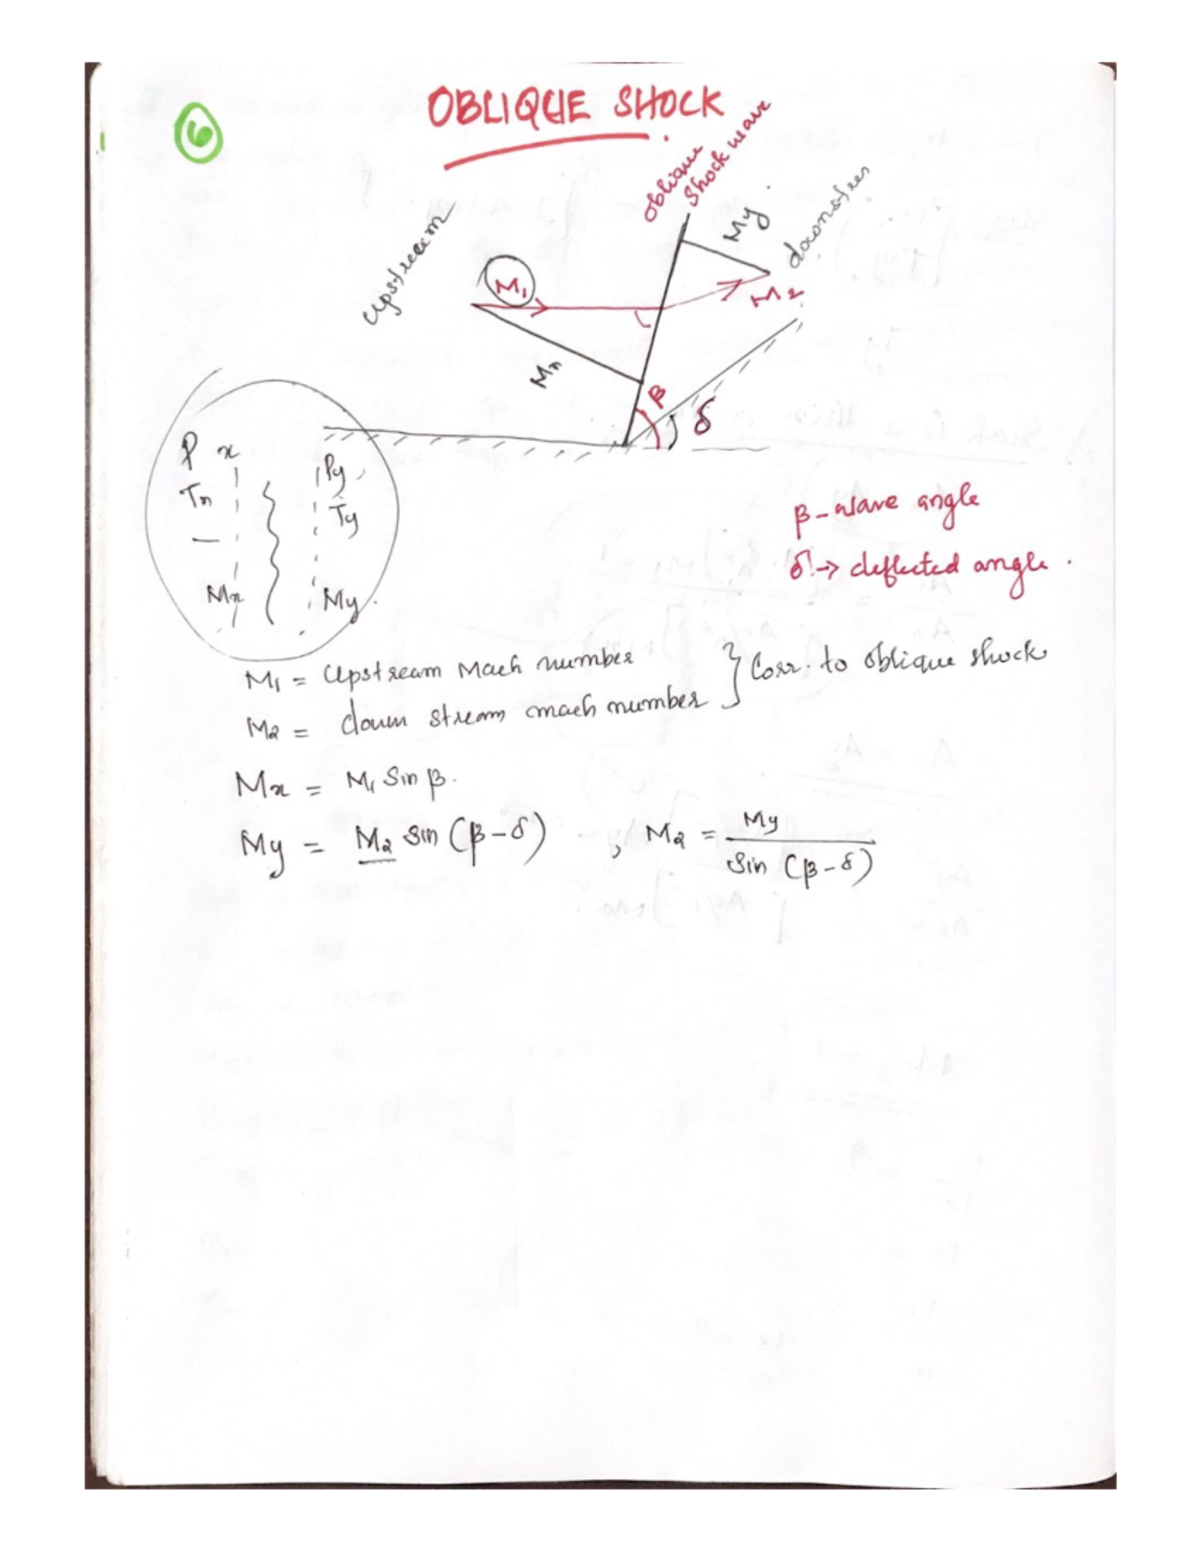 6
OBLIQUE SHOCK
Oblique
Shock wave
Upstream
M1
My
M2
Mx
β
δ
Px
Py
Tx
Ty
Mx
My
β - wave angle
δ → deflected angle.
M1 = Upstream Mach number
M2 = down stream mach number } Corr. to oblique shock
Mx = M1 Sin β.
My = M2 sin (β-δ) , M2 = My / Sin (β-δ)